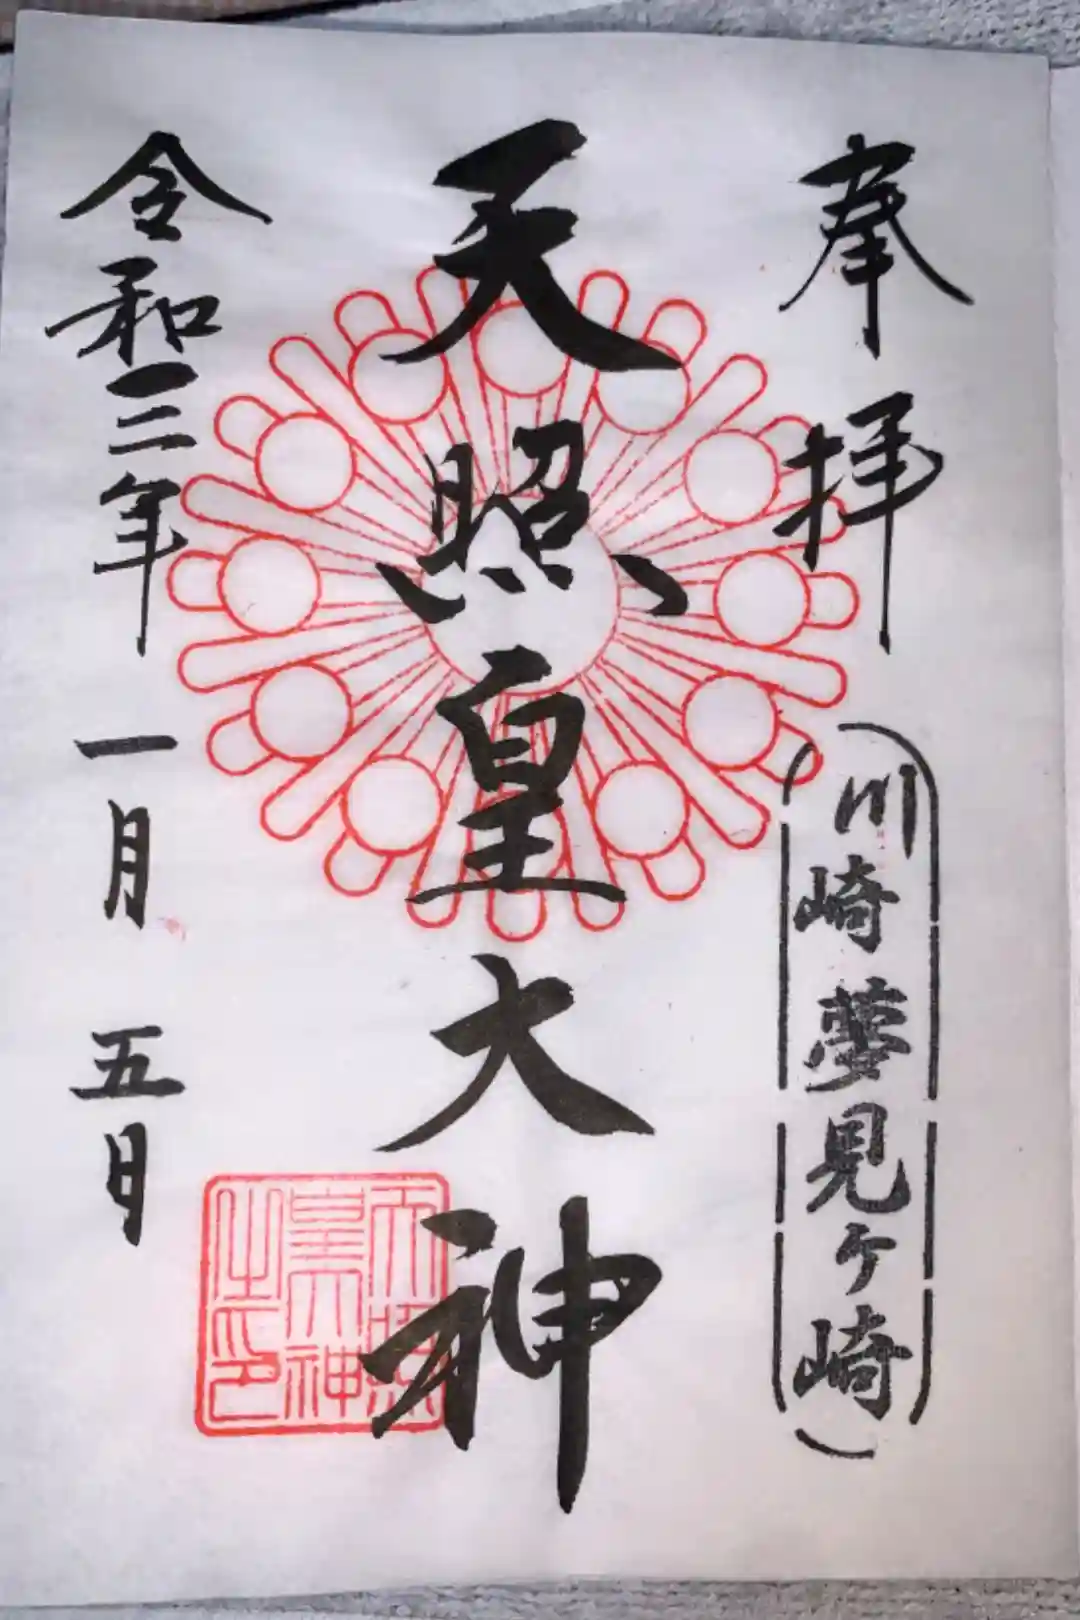 奉拝
川崎夢見ヶ崎
天照皇大神
天照
皇大神
之印
令和三年一月五日